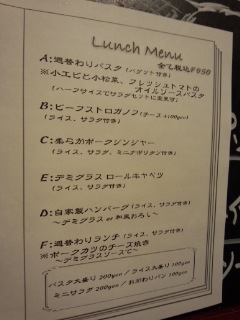 Lunch Menu
全て税込¥850
A:週替わりパスタ(バゲット付き)
※小エビと小松菜、フレッシュトマトの
オイルソースパスタ
(ハーフサイズでサラダセットに変更可)
B:ビーフストロガノフ(チーズ+100yen)
(ライス、サラダ付き)
C:柔らかポークジンジャー
(ライス、サラダ、ミニナポリタン付き)
E:デミグラスロールキャベツ
(ライス、サラダ付き)
D:自家製ハンバーグ(ライス、サラダ付き)
~デミグラス or 和風おろし~
F:週替わりランチ(ライス、サラダ付き)
※ポークカツのチーズ焼き
~デミグラスソースで~
パスタ大盛り 200yen / ライス大盛り 100yen
ミニサラダ 200yen / お代わりパン 100yen